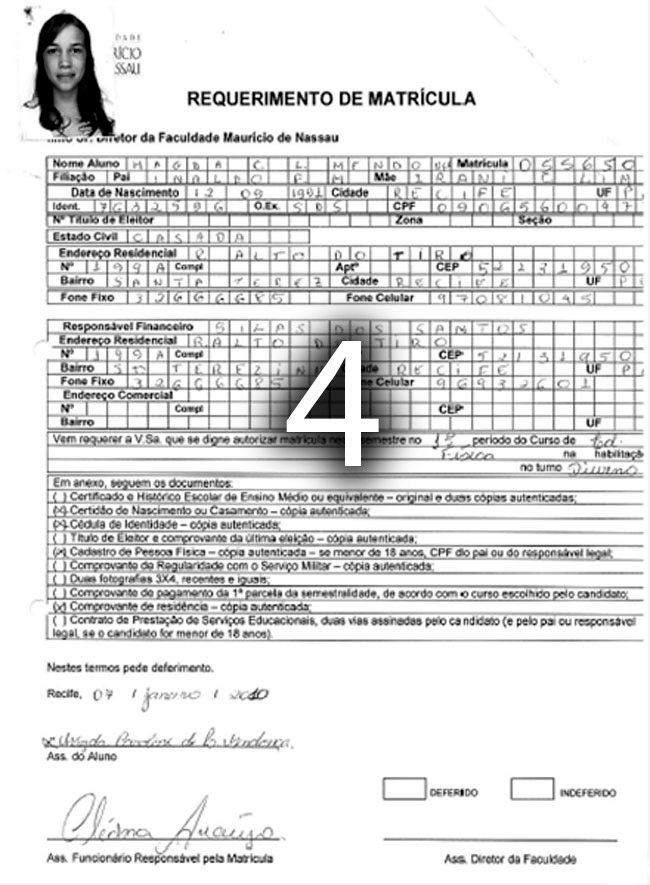 DADE
RÍCIO
SSAU
REQUERIMENTO DE MATRÍCULA
Diretor da Faculdade Maurício de Nassau
Nome Aluno MAGDA C. L. MENDO Matrícula 055650
Filiação Pai INALDO Mãe IRANI
Data de Nascimento 12 09 1991 Cidade RECIFE UF P
Ident. 7632596 O.Ex. SDS CPF 0906560097
Nº Título de Eleitor Zona Seção
Estado Civil CASADA
Endereço Residencial R ALTO DO TIRO
Nº 199A Compl Aptº CEP 52231950
Bairro SANTA TEREZ Cidade RECIFE UF P
Fone Fixo 32666685 Fone Celular 97081045
Responsável Financeiro SILAS DOS SANTOS
Endereço Residencial R ALTO DO TIRO
Nº 199A Compl CEP 52131950
Bairro TEREZIN ade RECIFE UF P
Fone Fixo 32666685 ne Celular 96932601
Endereço Comercial
Nº Compl CEP
Bairro UF
4
Vem requerer a V.Sa. que se digne autorizar matrícula semestre no 1º período do Curso de Ed.
Física na habilitaçã
no turno Diurno
Em anexo, seguem os documentos:
( ) Certificado e Histórico Escolar de Ensino Médio ou equivalente – original e duas cópias autenticadas;
(x) Certidão de Nascimento ou Casamento – cópia autenticada;
(x) Cédula de Identidade – cópia autenticada;
( ) Título de Eleitor e comprovante da última eleição – cópia autenticada;
(x) Cadastro de Pessoa Física – cópia autenticada – se menor de 18 anos, CPF do pai ou do responsável legal;
( ) Comprovante de Regularidade com o Serviço Militar – cópia autenticada;
( ) Duas fotografias 3X4, recentes e iguais;
( ) Comprovante de pagamento da 1ª parcela da semestralidade, de acordo com o curso escolhido pelo candidato;
(x) Comprovante de residência – cópia autenticada;
( ) Contrato de Prestação de Serviços Educacionais, duas vias assinadas pelo candidato (e pelo pai ou responsável
legal, se o candidato for menor de 18 anos).
Nestes termos pede deferimento.
Recife, 07 / janeiro / 2010
Ass. do Aluno
DEFERIDO INDEFERIDO
Cléoma Araújo
Ass. Funcionário Responsável pela Matrícula Ass. Diretor da Faculdade